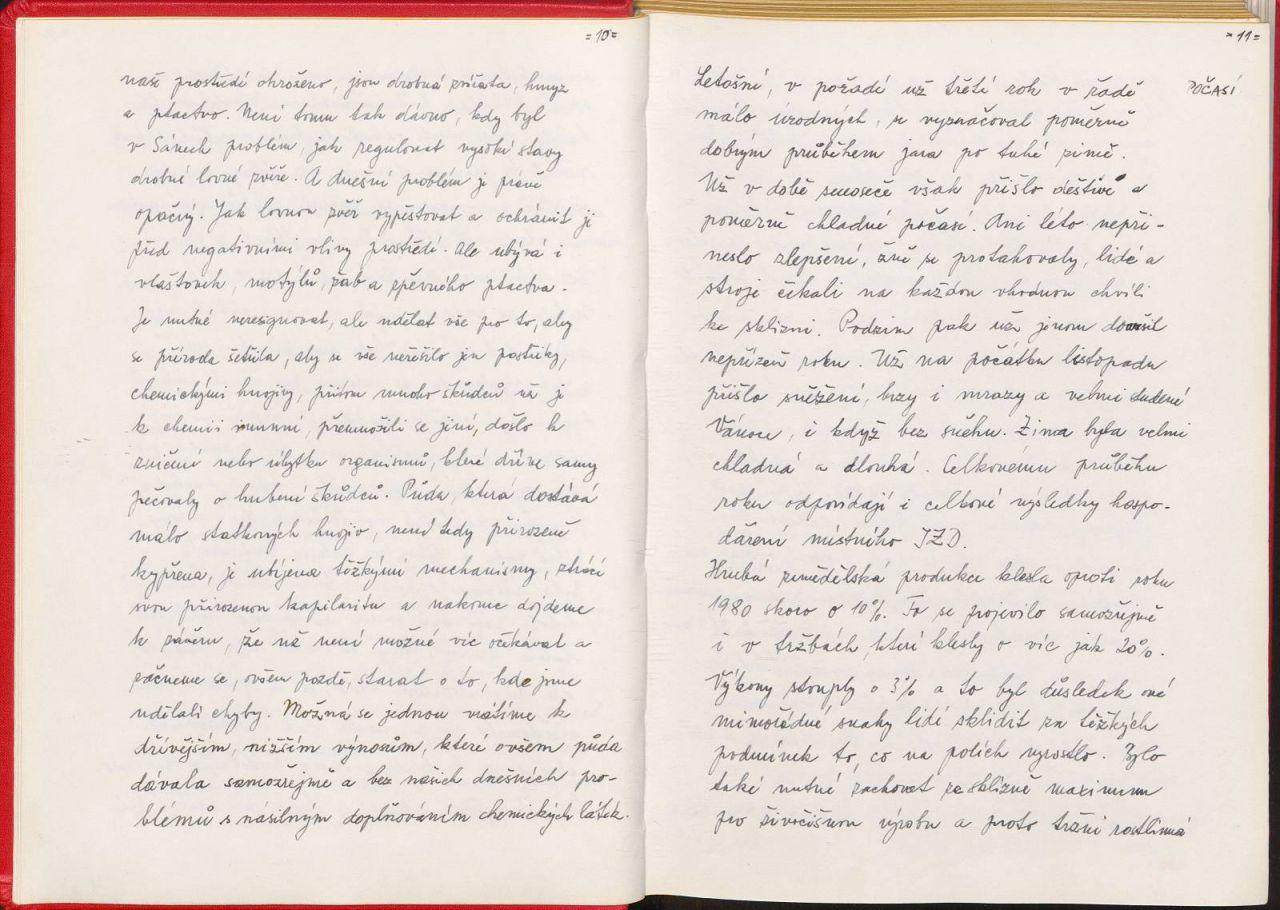 =10=
naše prostředí ohroženo, jsou drobná zvířata, hmyz
a ptactvo. Není tomu tak dávno, kdy byl
v Sánech problém, jak regulovat vysoké stavy
drobné lovné zvěře. A dnešní problém je právě
opačný. Jak lovnou zvěř vypěstovat a ochránit ji
před negativními vlivy prostředí. Ale ubývá i
vlaštovek, motýlů, žab a zpěvného ptactva.
Je nutné neresignovat, ale udělat vše pro to, aby
se příroda šetřila, aby se vše neřešilo jen postřiky,
chemickými hnojivy, přitom mnoho škůdců už je
k chemii imunní, přemnožili se jiní, došlo k
zničení nebo úbytku organismů, které dříve samy
pečovaly o hubení škůdců. Půda, která dostává
málo statkových hnojiv, není tedy přirozeně
kypřena, je ubíjena těžkými mechanismy, ztrácí
svou přirozenou kapilaritu a nakonec dojdeme
k závěru, že už není možné víc očekávat a
začneme se, ovšem pozdě, starat o to, kde jsme
udělali chyby. Možná se jednou vrátíme k
dřívějším, nižším výnosům, které ovšem půda
dávala samozřejmě a bez našich dnešních pro-
blémů s násilným doplňováním chemických látek.
=11=
POČASÍ
Letošní, v pořadí už třetí rok v řadě
málo úrodných, se vyznačoval poměrně
dobrým průběhem jara po tuhé zimě.
Už v době senoseče však přišlo deštivé a
poměrně chladné počasí. Ani léto nepři-
neslo zlepšení, žně se protahovaly, lidé a
stroje čekali na každou vhodnou chvíli
ke sklizni. Podzim pak už jenom dovršil
nepřízeň roku. Už na počátku listopadu
přišlo sněžení, brzy i mrazy a velmi studené
Vánoce, i když bez sněhu. Zima byla velmi
chladná a dlouhá. Celkovému průběhu
roku odpovídají i celkové výsledky hospo-
daření místního JZD.
Hrubá zemědělská produkce klesla oproti roku
1980 skoro o 10%. To se projevilo samozřejmě
i v tržbách, které klesly o víc jak 20%.
Výkony stouply o 3% a to byl důsledek oné
mimořádné snahy lidí sklidit za těžkých
podmínek to, co na polích vyrostlo. Bylo
také nutné zachovat ze sklizně maximum
pro živočišnou výrobu a proto tržní rostlinná